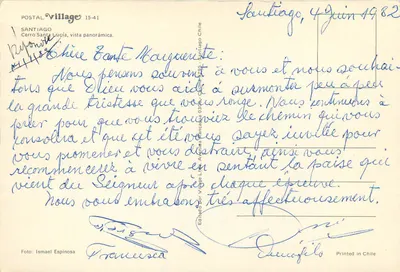 POSTAL Village 13-41
SANTIAGO
Cerro Santa Lucía, vista panorámica.
Santiago, 4 Juin 1982
Chère Tante Marguerite:
Nous pensons souvent à vous et nous souhai-
tons que Dieu vous aide à surmonter peu à peu
la grande tristesse que vous ronge. Nous continuons à
prier pour que vous trouviez le chemin qui vous
consolra et que cet été vous soyez invitée pour
vous promener et vous distraire, ainsi vous
recommencerez à vivre en sentant la paise qui
vient du Seigneur après chaque épreuve.
Nous vous embrasons très affectueusement.
Francisca
Foto: Ismael Espinosa
Printed in Chile